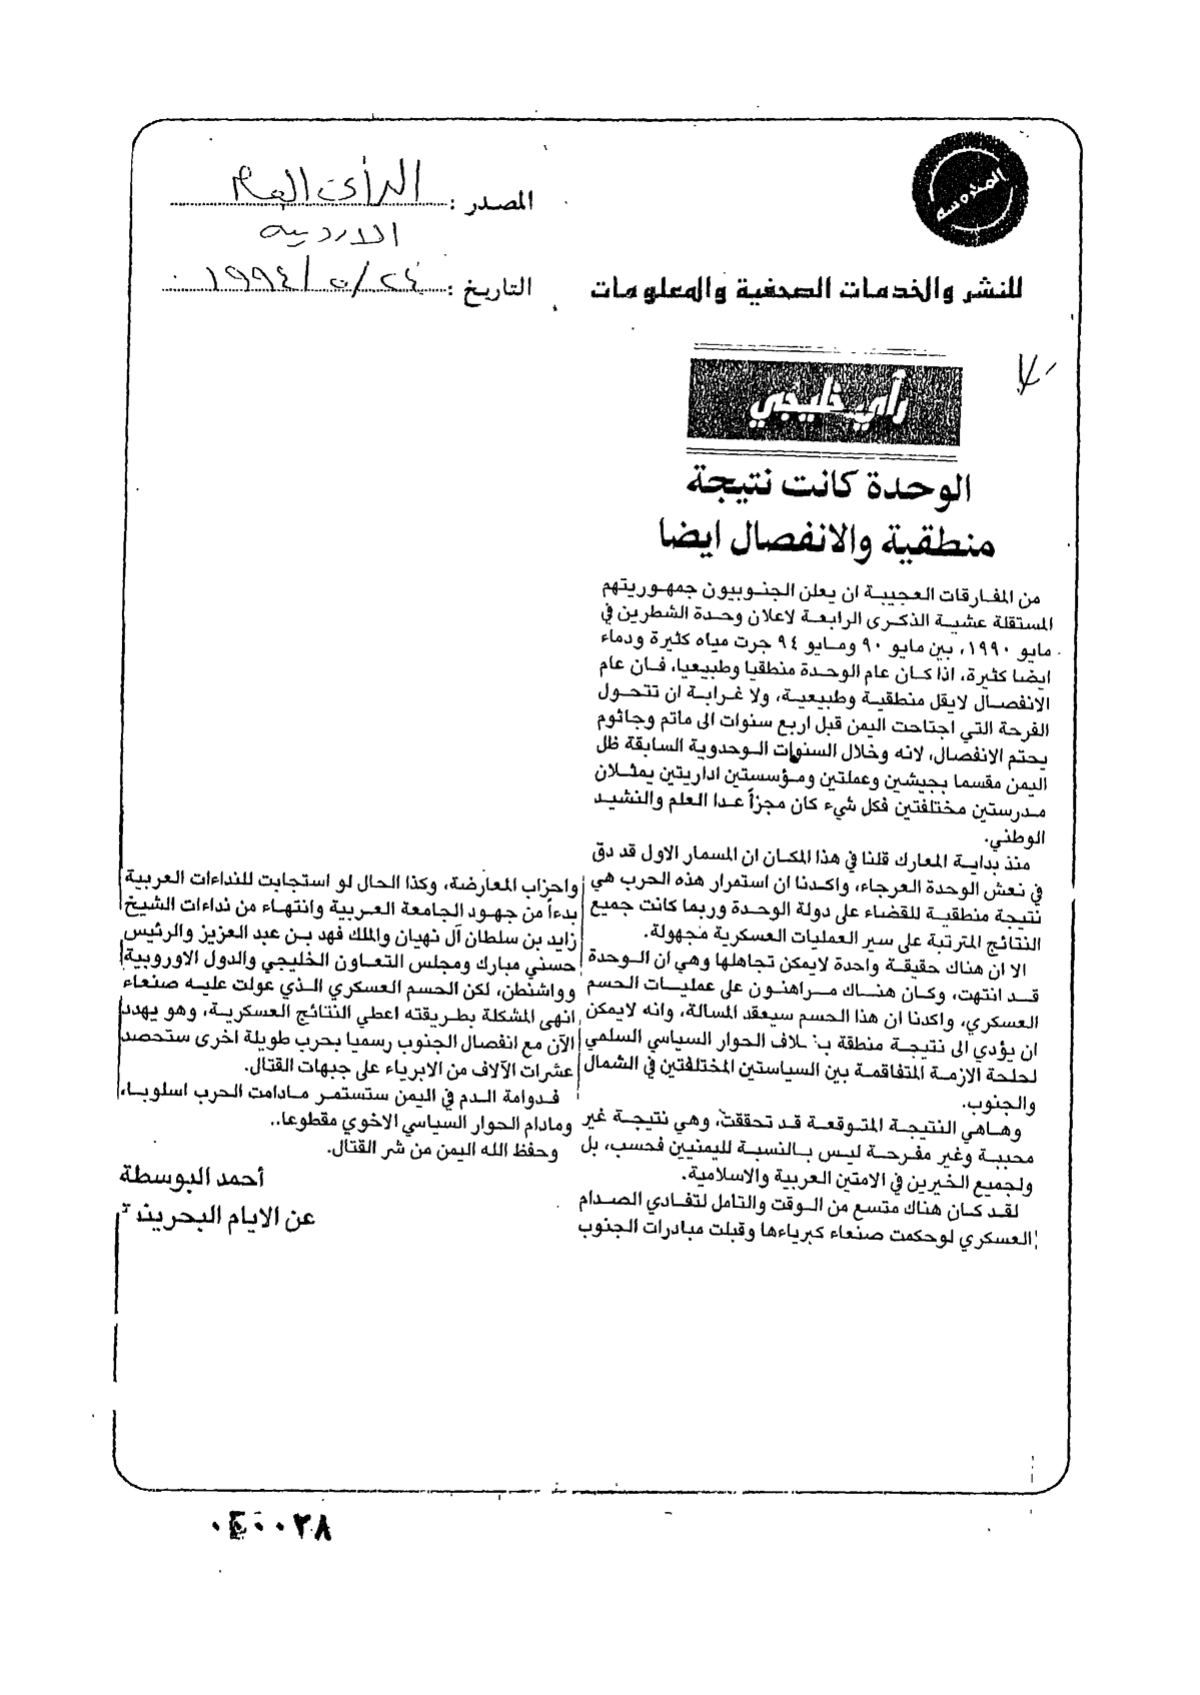 المصدر : الرأي العام
الاردنية
التاريخ : ٢٤ / ٥ / ١٩٩٤
للنشر والخدمات الصحفية والمعلومات
رأي خليجي
الوحدة كانت نتيجة
منطقية والانفصال ايضا
من المفارقات العجيبة ان يعلن الجنوبيون جمهوريتهم
المستقلة عشية الذكرى الرابعة لاعلان وحدة الشطرين في
مايو ١٩٩٠، بين مايو ٩٠ ومايو ٩٤ جرت مياه كثيرة ودماء
ايضا كثيرة، اذا كان عام الوحدة منطقيا وطبيعيا، فان عام
الانفصال لايقل منطقية وطبيعية، ولا غرابة ان تتحول
الفرحة التي اجتاحت اليمن قبل اربع سنوات الى ماتم وجاثوم
يحتم الانفصال، لانه وخلال السنوات الوحدوية السابقة ظل
اليمن مقسما بجيشين وعملتين ومؤسستين اداريتين يمثلان
مدرستين مختلفتين فكل شيء كان مجزأ عدا العلم والنشيد
الوطني.
منذ بداية المعارك قلنا في هذا المكان ان المسمار الاول قد دق
في نعش الوحدة العرجاء، واكدنا ان استمرار هذه الحرب هي
نتيجة منطقية للقضاء على دولة الوحدة وربما كانت جميع
النتائج المترتبة على سير العمليات العسكرية مجهولة.
الا ان هناك حقيقة واحدة لايمكن تجاهلها وهي ان الوحدة
قد انتهت، وكان هناك مراهنون على عمليات الحسم
العسكري، واكدنا ان هذا الحسم سيعقد المسالة، وانه لايمكن
ان يؤدي الى نتيجة منطقة بخلاف الحوار السياسي السلمي
لحلحة الازمة المتفاقمة بين السياستين المختلفتين في الشمال
والجنوب.
وهاهي النتيجة المتوقعة قد تحققت، وهي نتيجة غير
محببة وغير مفرحة ليس بالنسبة لليمنيين فحسب، بل
ولجميع الخيرين في الامتين العربية والاسلامية.
لقد كان هناك متسع من الوقت والتامل لتفادي الصدام
العسكري لوحكمت صنعاء كبرياءها وقبلت مبادرات الجنوب
واحزاب المعارضة، وكذا الحال لو استجابت للنداءات العربية
بدءاً من جهود الجامعة العربية وانتهاء من نداءات الشيخ
زايد بن سلطان آل نهيان والملك فهد بن عبد العزيز والرئيس
حسني مبارك ومجلس التعاون الخليجي والدول الاوروبية
وواشنطن، لكن الحسم العسكري الذي عولت عليه صنعاء
انهى المشكلة بطريقته اعطي النتائج العسكرية، وهو يهدد
الآن مع انفصال الجنوب رسميا بحرب طويلة اخرى ستحصد
عشرات الآلاف من الابرياء على جبهات القتال.
فدوامة الدم في اليمن ستستمر مادامت الحرب اسلوبا،
ومادام الحوار السياسي الاخوي مقطوعا..
وحفظ الله اليمن من شر القتال.
أحمد البوسطة
عن الايام البحرينية
٠٤٠٠٢٨